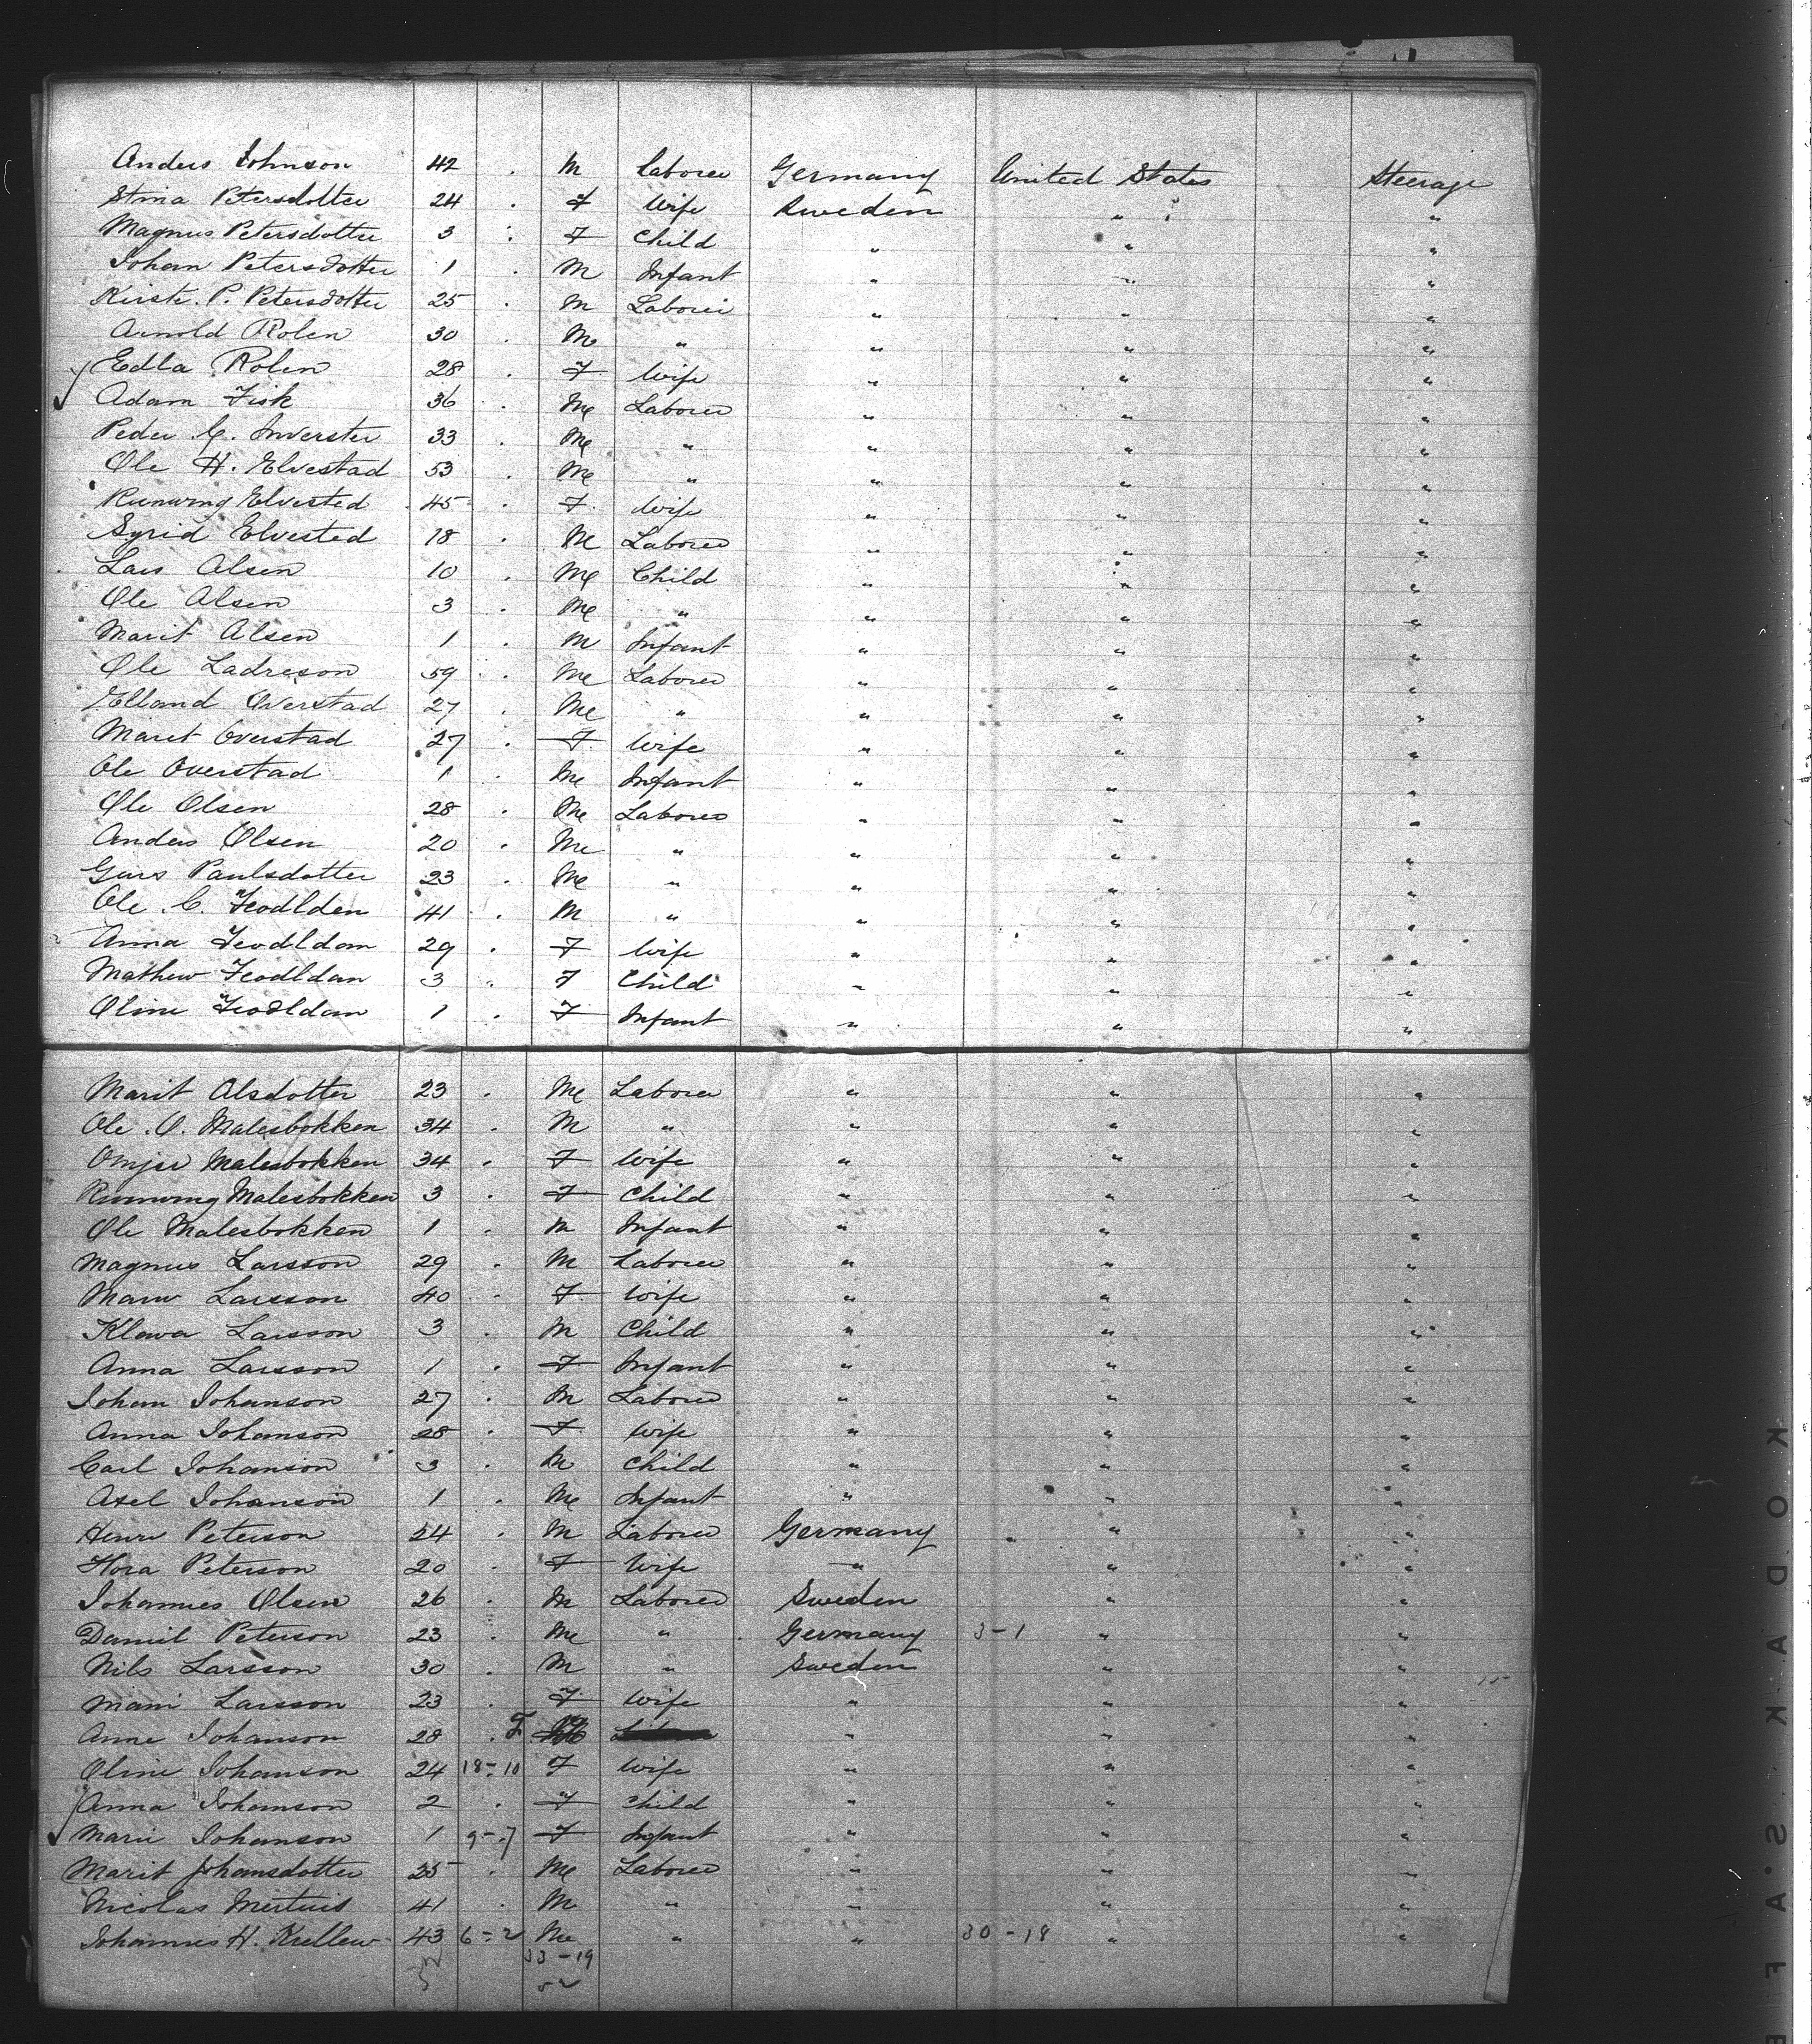 Anders Johnson 42 . M Laborer Germany United States Steerage
Stina Petersdotter 24 . F Wife Sweden " "
Magnus Petersdotter 3 . F Child " " "
Johan Petersdotter 1 . M Infant " " "
Kirste. P. Petersdotter 25 . M Laborer " " "
Arnold Rolen 30 . M " " " "
Edla Rolen 28 . F Wife " " "
Adam Fisk 36 . M Laborer " " "
Peder C. Inverster 33 . M " " " "
Ole H. Elvestad 53 . M " " " "
Runwing Elvested 45 . F Wife " " "
Syrid Elvested 18 . M Laborer " " "
Lars Olsen 10 . M Child " " "
Ole Olsen 3 . M " " " "
Marit Olsen 1 . M Infant " " "
Ole Ladreson 59 . M Laborer " " "
Elland Overstad 27 . M " " " "
Maret Overstad 27 . F Wife " " "
Ole Overstad 1 . M Infant " " "
Ole Olsen 28 . M Laborer " " "
Anders Olsen 20 . M " " " "
Guro Paulsdotter 23 . M " " " "
Ole C. Feodlden 41 . M " " " "
Anna Feodldam 29 . F Wife " " "
Mathew Feodldan 3 . F Child " " "
Oline Feodldam 1 . F Infant " " "
Marit Olsdotter 23 . M Laborer " " "
Ole. O. Malesbokken 34 . M " " " "
Omjer Malesbokken 34 . F Wife " " "
Runwing Malesbokken 3 . F Child " " "
Ole Malesbokken 1 M Infant " " "
Magnus Larsson 29 . M Laborer " " "
Larsson 40 . F Wife " " "
Klowa Larsson 3 . M Child " " "
Anna Larsson 1 . F Infant " " "
Johan Johanson 27 . M Laborer " " "
Anna Johanson 28 . F Wife " " "
Carl Johanson 3 . M Child " " "
Axel Johanson 1 . M Infant " " "
Henri Peterson 24 . M Laborer Germany " "
Flora Peterson 20 . F Wife " " "
Johannes Olsen 26 . M Laborer Sweden " "
Daniel Peterson 23 . M " Germany 3-1 " "
Nils Larsson 30 . M " Sweden " "
Larsson 23 . F Wife " " "
Anne Johanson 28 . F " " "
Oline Johanson 24 18-10 F Wife " " "
Anna Johanson 2 . F Child " " "
Marie Johanson 1 9-7 F Infant " " "
Marit Johansdotter 25 . M Laborer " " "
Nicolas Mertius 41 . M " " " "
Johannes H. Krellew 43 6-2 M " " 30-18 " "
33-19
52
KODAK S.A.F.E